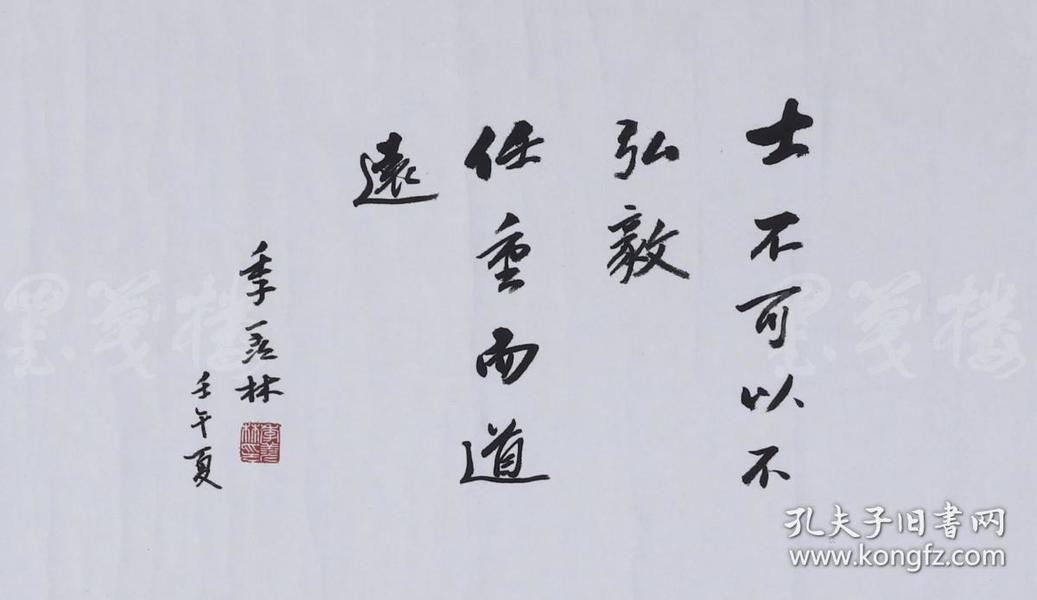 士不可以不
弘毅
任重而道
遠
季羡林
壬午夏
季羡林印
墨笺楼
墨笺楼
孔夫子旧书网
www.kongfz.com